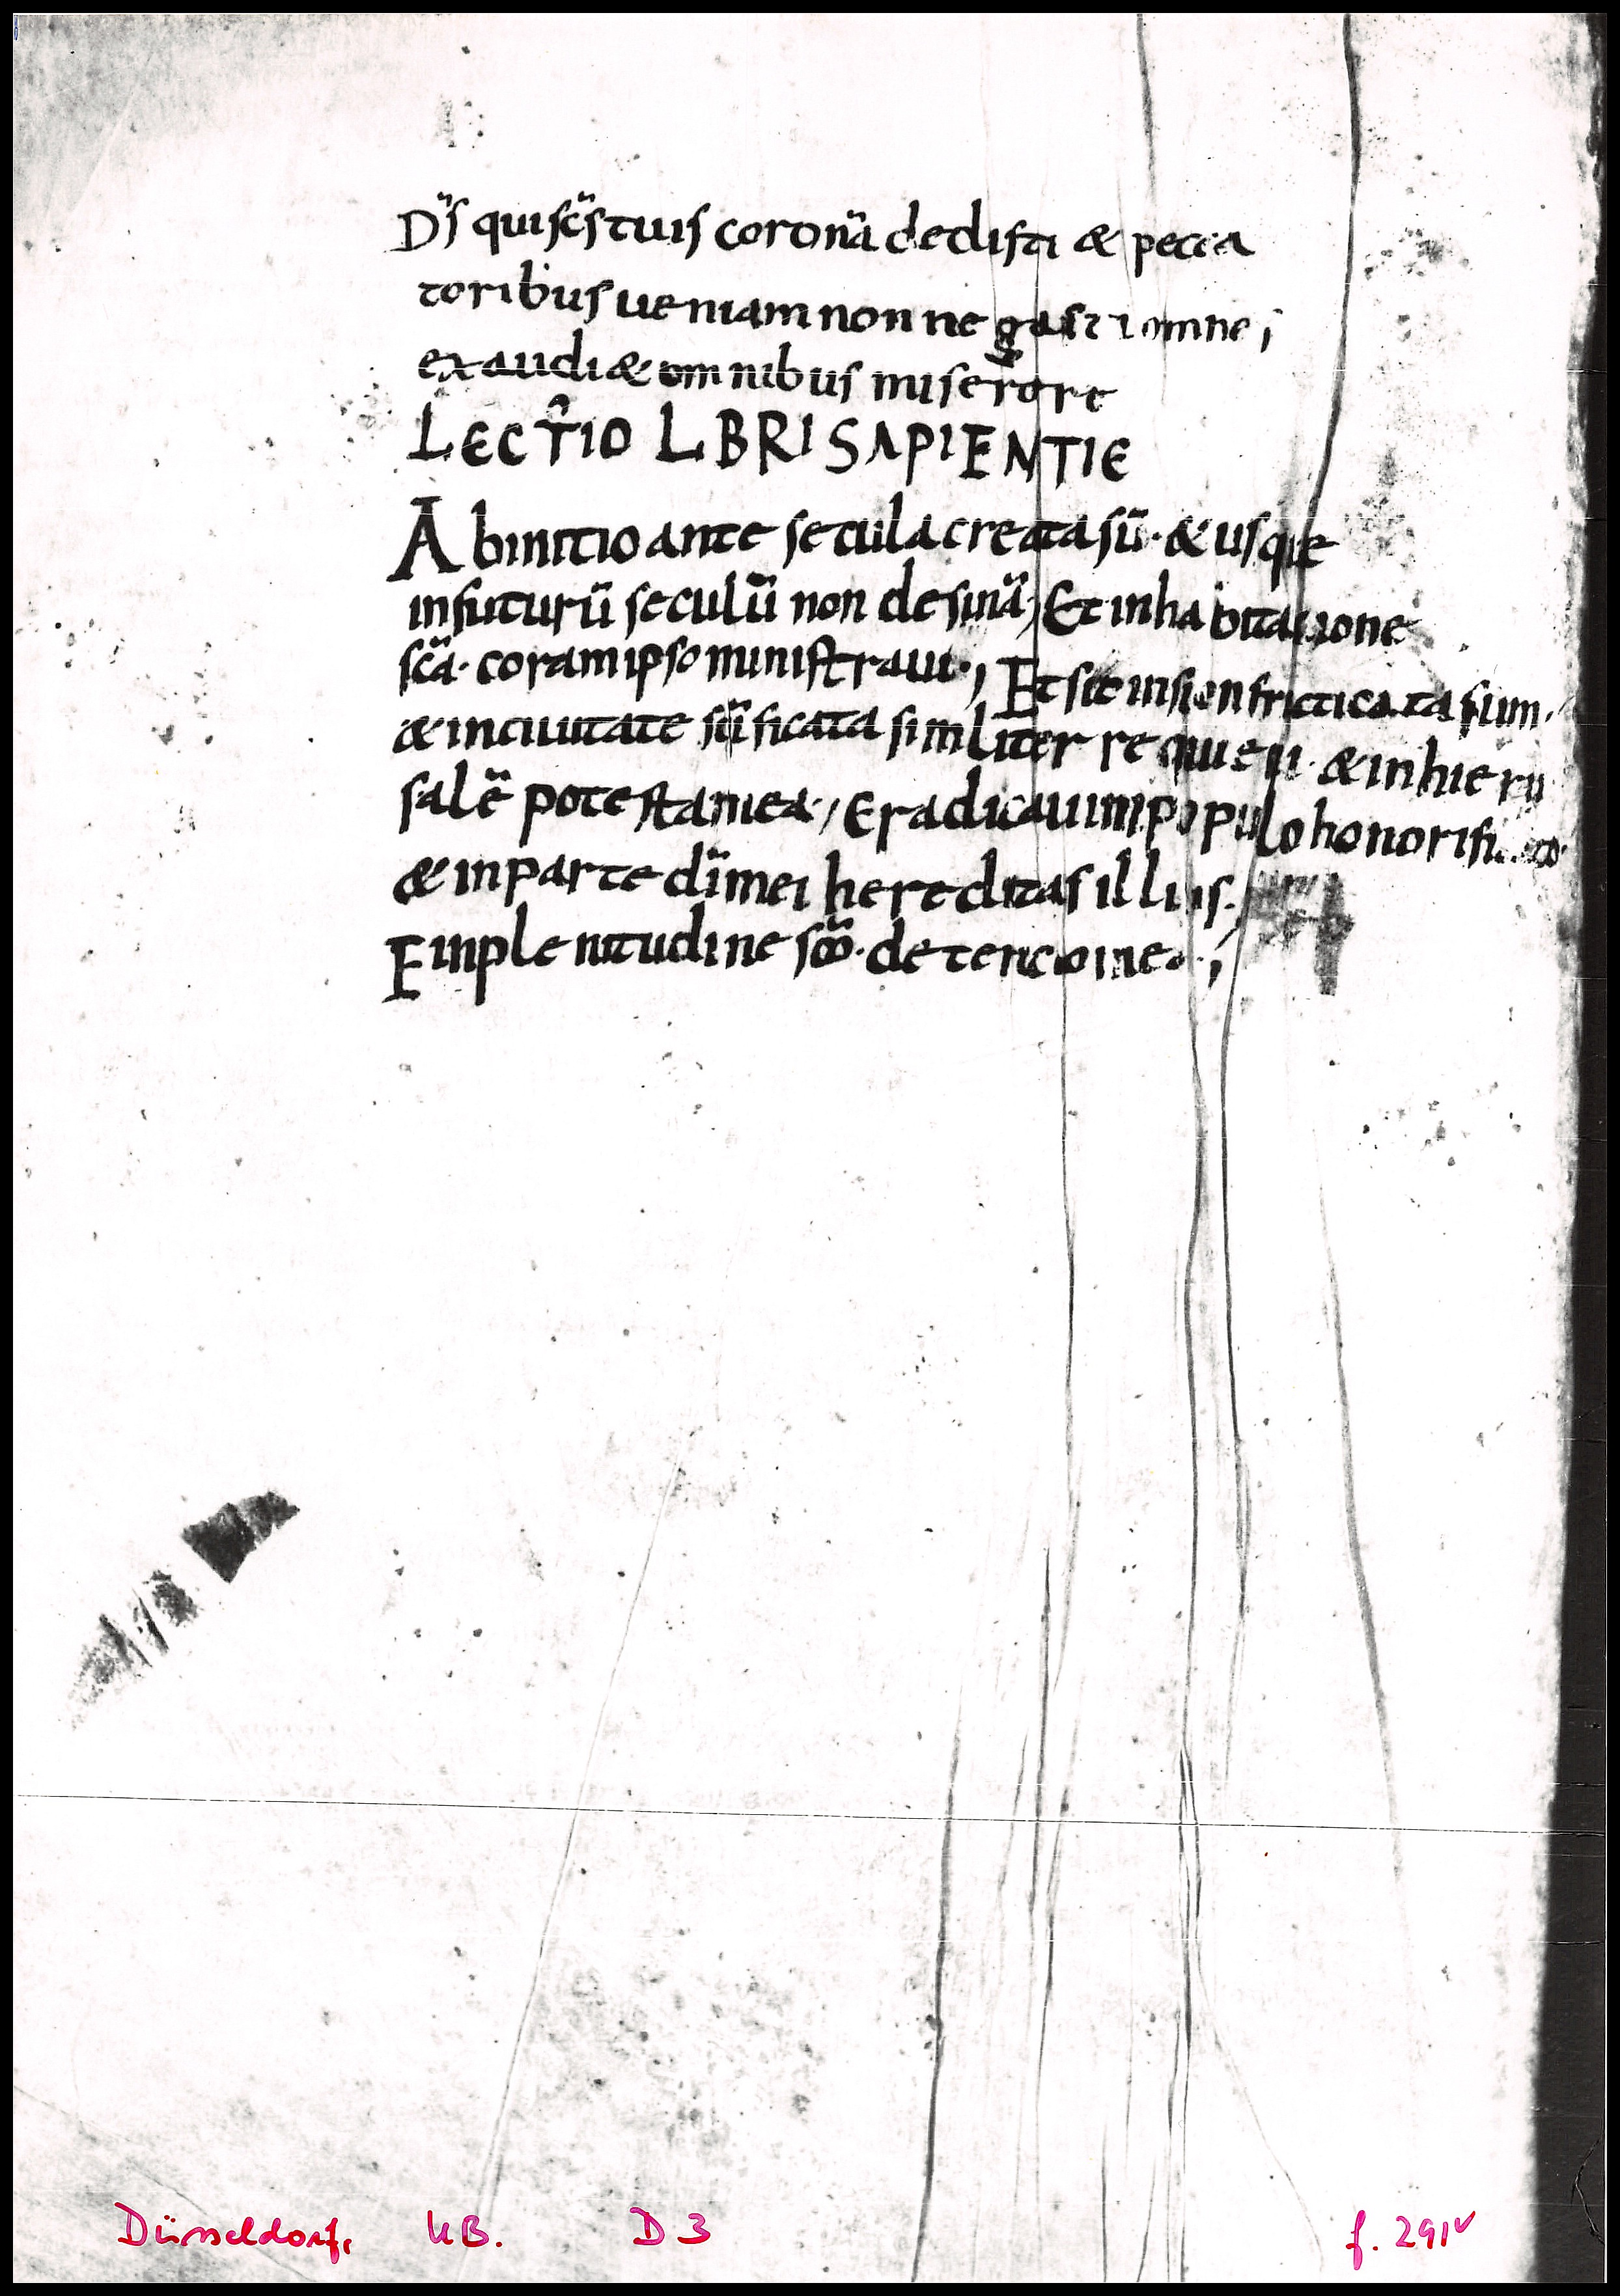 Dͫs quiscͫstuis coronā dedisti & pecca
toribus ueniam non ne gasti omnes
exaudi & omnibus miserere
LECTIO LBRI SAPIENTIE
Abinitio ante secula creata sū· & usque
infuturū seculū non desinā; Et inhabitatione
scā· coram ipso ministraui·; Et sic insion frmcticata sum·
& inciuitate scīficata similiter requieui· & inhieru
salē potestamea·, Eradicaui inpopulo honorifi
& inparte dīmei hereditas illius·
Einplenitudine scōꝝ· detentio mea·;
Düsseldorf, UB. D 3 f. 291v